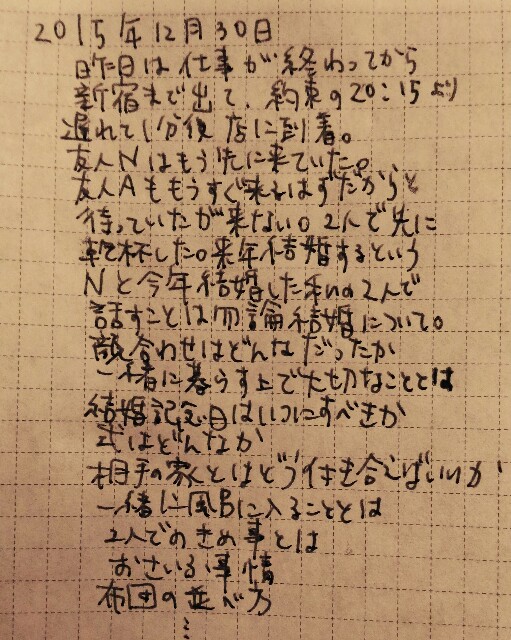 2015年12月30日
昨日は仕事が終わってから
新宿まで出て、約束の20:15より
遅れて1分後店に到着。
友人Nはもう先に来ていた。
友人Aももうすぐ来るはずだからと
待っていたが来ない。2人で先に
乾杯した。来年結婚するという
Nと今年結婚した私の2人で
話すことは勿論結婚について。
顔合わせはどんなだったか
一緒に暮らす上で大切なこととは
結婚記念日はいつにすべきか
式はどんなか
相手の家とはどう付き合えばいいか
一緒に風呂に入ることとは
2人でのきめ事とは
おさいふ事情
布団の並べ方
⋮